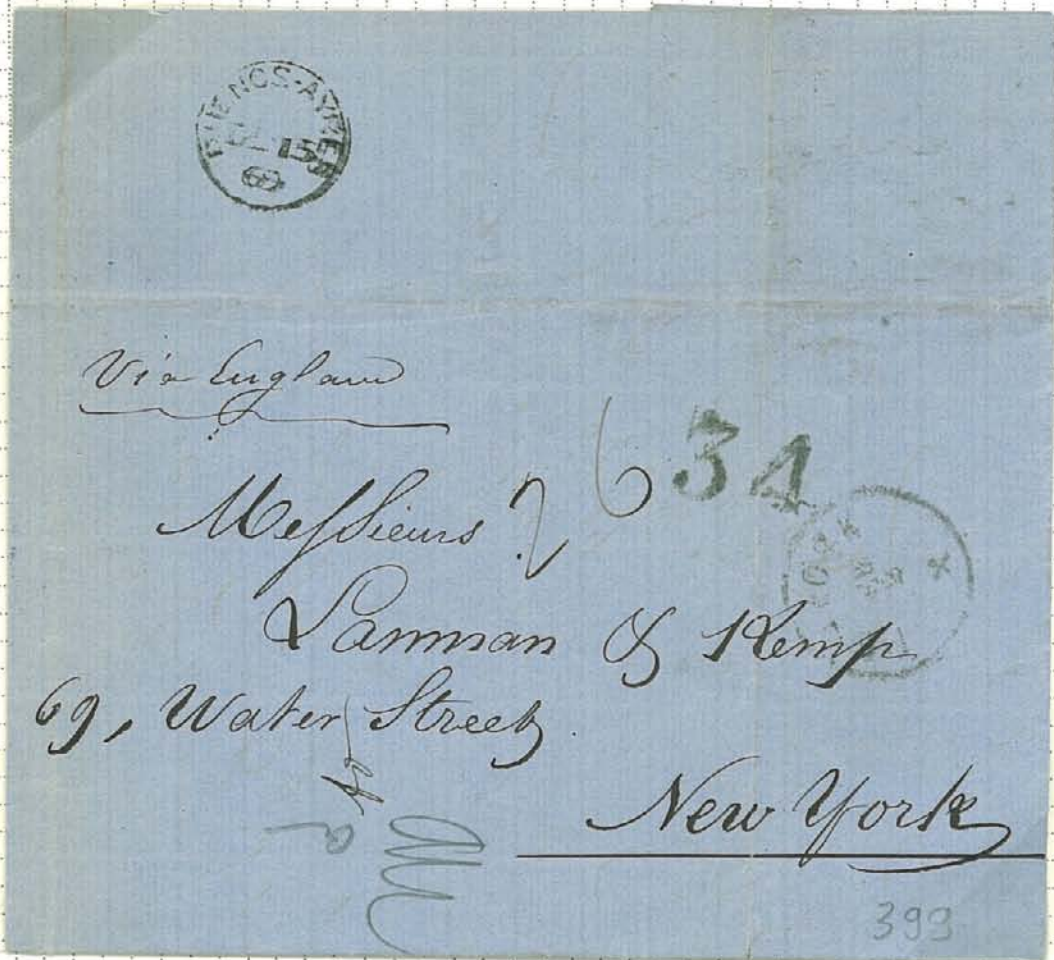 BUENOS-AYRES
15
Via England
634
Messieurs
Lanman & Kemp
69, Water Street
New York
399